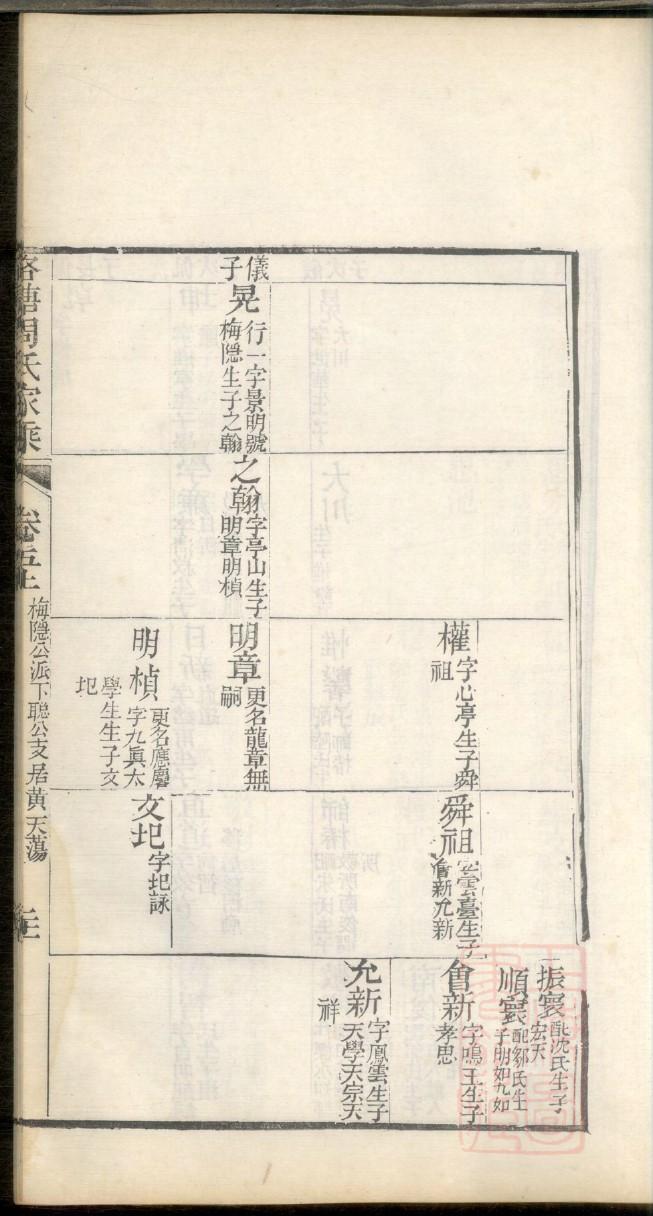 振寰配沈氏生子
宏天
順寰配鄒氏生
子朋如九如
權字心亭生子舜
祖
舜祖字雲臺生子
會新允新
會新字鳴玉生子
孝思
允新字鳳雲生子
天學天宗天
祥
儀
子
晃行一字景明號
梅隱生子之翰
之翰字亭山生子
明章明楨
明章更名龍章無
嗣
明楨更名應麐
字九眞太
學生生子文
圯
文圯字圯詠
周氏家乘
卷五上
梅隱公派下聰公支居黃天蕩